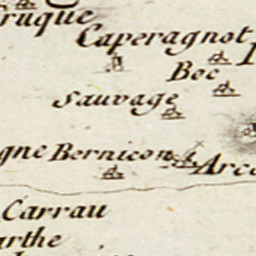 ruque
Caperagnot
Boc
Sauvage
gne Bernicon
Arc
Carrau
arthe